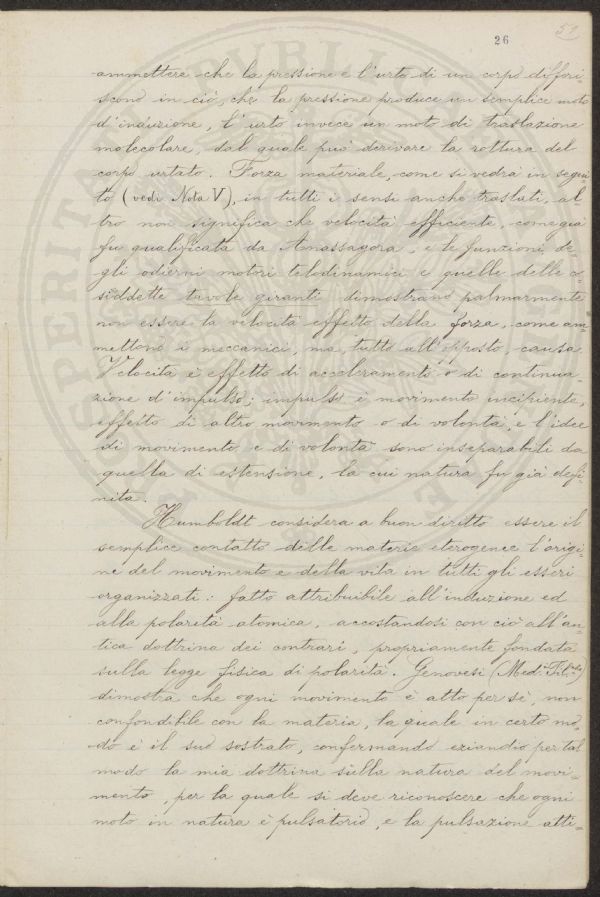 26
51
ammettere che la pressione e l'urto di un corpo differi-
scono in ciò, che la pressione produce un semplice moto
d'induzione, l'urto invece un moto di traslazione
molecolare, dal quale può derivare la rottura del
corpo urtato. Forza materiale, come si vedrà in segui-
to (vedi Nota V), in tutti i sensi anche traslati, al
tro non significa che velocità efficiente, come già
fu qualificata da Anassagora, e le funzioni de-
gli odierni motori telodinamici e quelle delle co-
siddette tavole giranti dimostrano palmarmente
non essere la velocità effetto della forza, come am-
mettono i meccanici, ma, tutto all'opposto, causa.
Velocità è effetto di acceleramento o di continua-
zione d'impulso; impulso è movimento incipiente,
effetto di altro movimento o di volontà, e l'idee
di movimento e di volontà sono inseparabili da
quella di estensione, la cui natura fu già defi
nita.
Humboldt considera a buon diritto essere il
semplice contatto delle materie eterogenee l'origi-
ne del movimento e della vita in tutti gli esseri
organizzati: fatto attribuibile all'induzione ed
alla polarità atomica, accostandosi con ciò all'an-
tica dottrina dei contrari, propriamente fondata
sulla legge fisica di polarità. Genovesi (Med.
dimostra che ogni movimento è atto per sè, non
confondibile con la materia, la quale in certo mo-
do è il suo sostrato, confermando eziandio per tal
modo la mia dottrina sulla natura del movi-
mento, per la quale si deve riconoscere che ogni
moto in natura è pulsatorio, e la pulsazione atti-